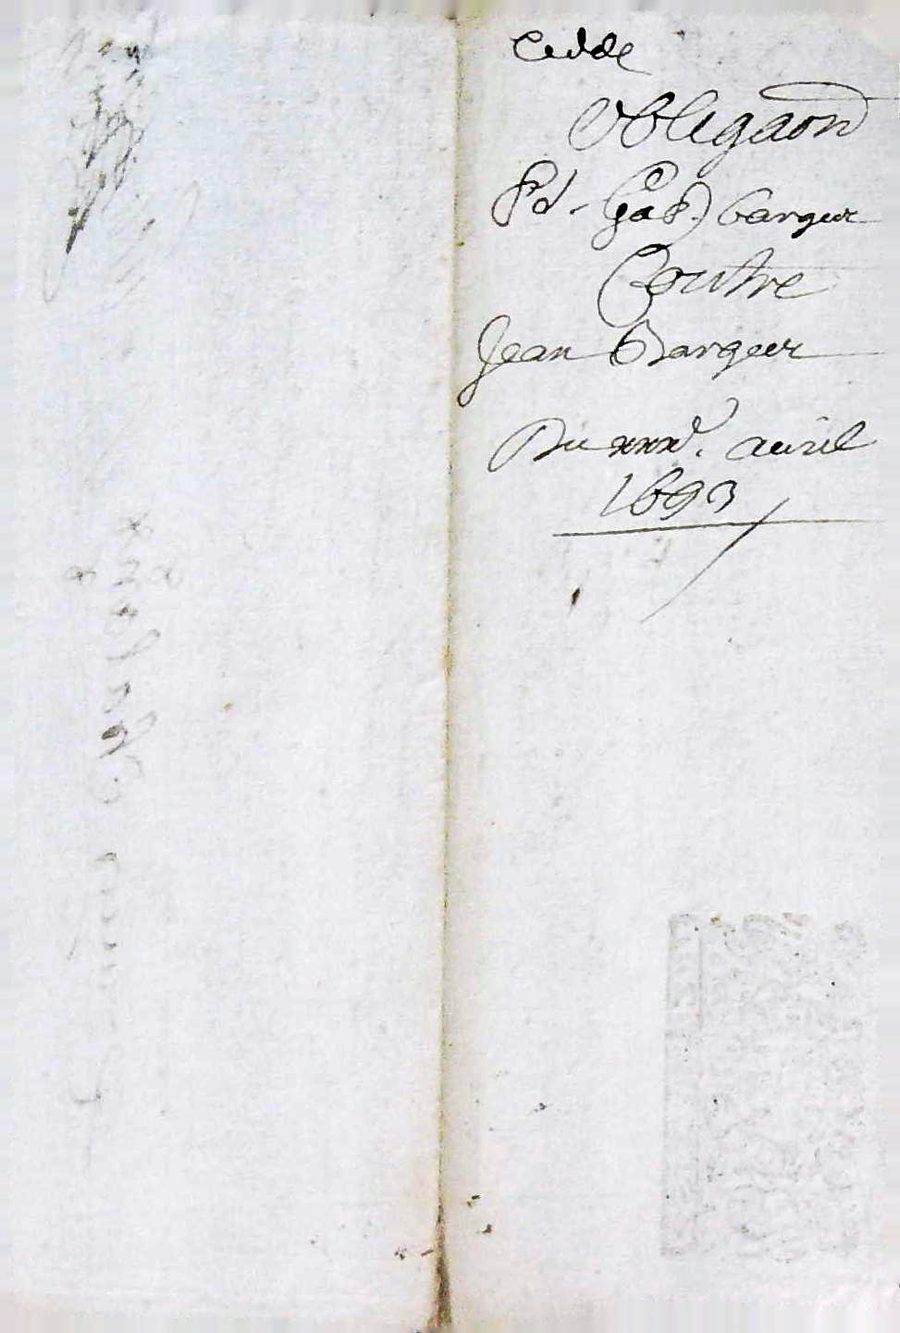 Cedde
Obligaon
Pd. Gas.) bargeur
Contre
Jean Bargeur
Du xxxe. avril
1693